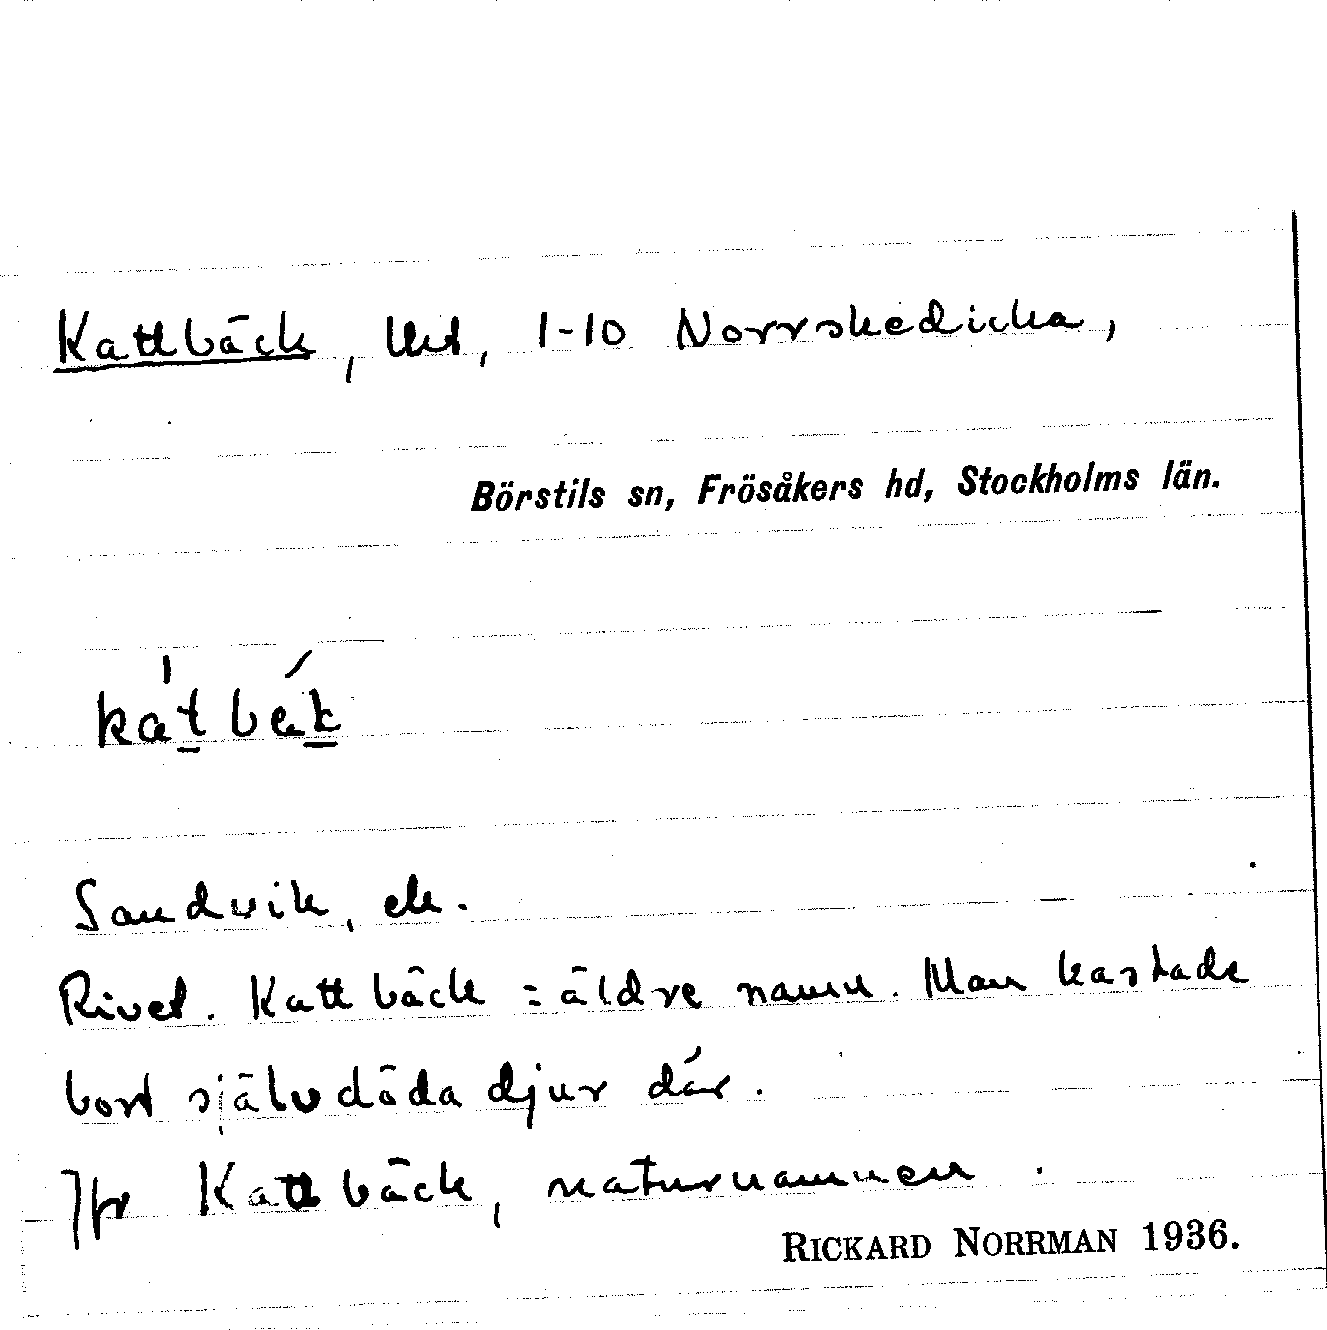 Kattbäck, lht, 1-10 Norrskedicka,
Börstils sn, Frösåkers hd, Stockholms län.
Sandvik, ek.
Rivet. Kattbäck = äldre namn. Man kastade
bort självdöda djur där.
Jfr Kattbäck, naturnamnen.
RICKARD NORRMAN 1936.